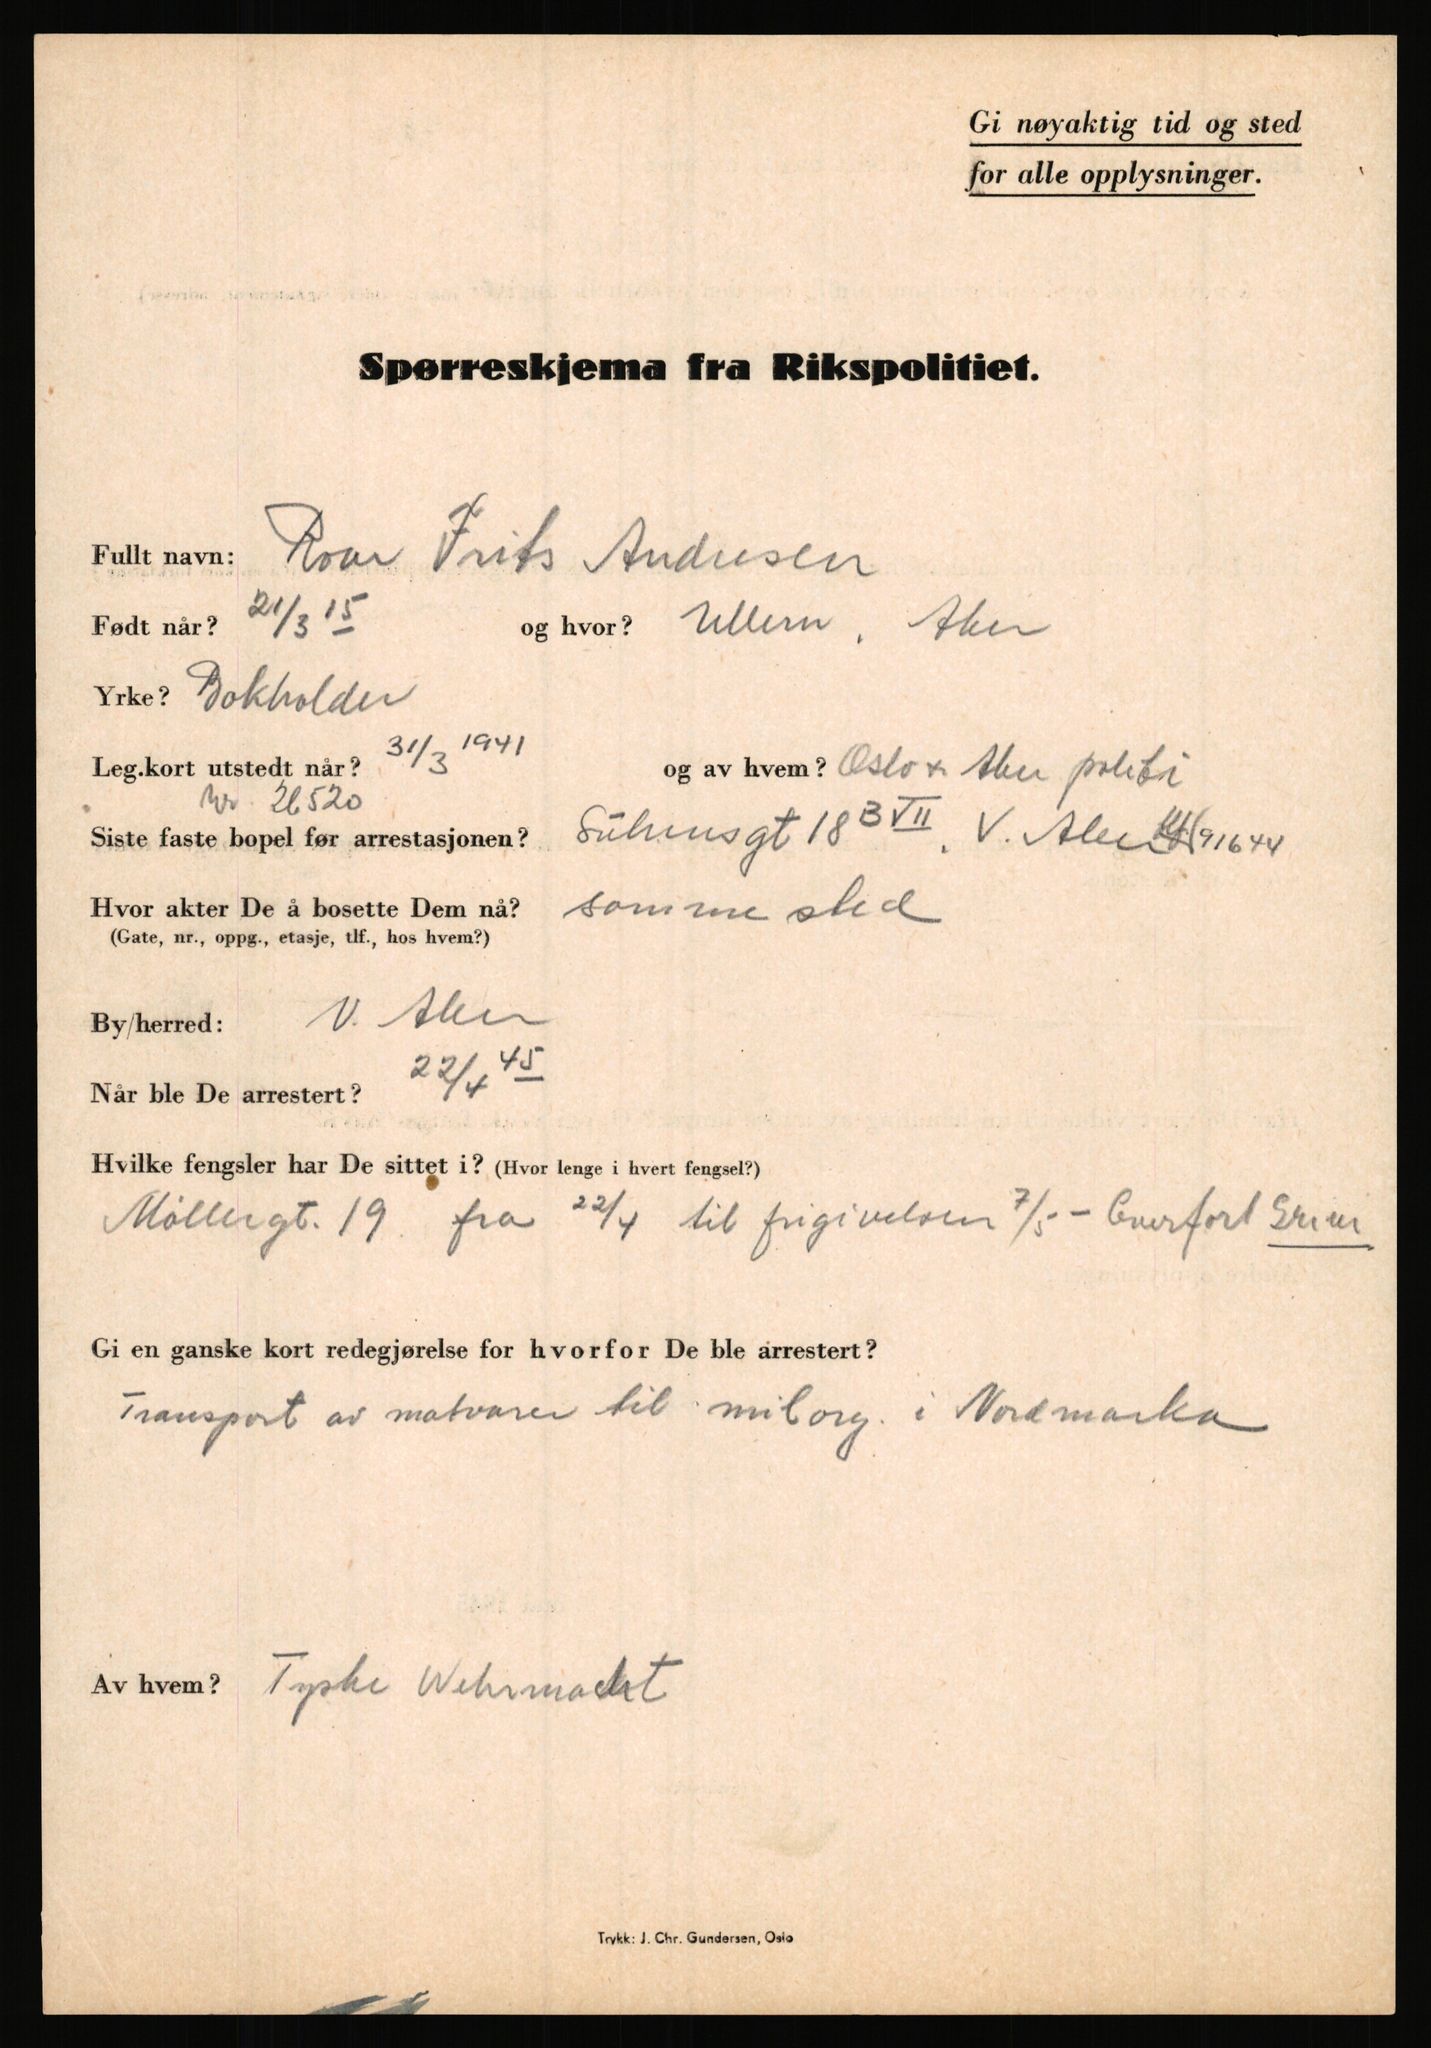 Gi nøyaktig tid og sted
for alle opplysninger.
Spørreskjema fra Rikspolitiet.
Fullt navn: Roar Frits Andresen
Født når? 21/3 15 og hvor? Ullern, Aker
Yrke? Bokholder
Leg.kort utstedt når? 31/3 1941 og av hvem? Oslo & Aker politi
Nr. 26520
Siste faste bopel før arrestasjonen? Suhmsgt 18 B VII, V. Aker tlf 91644
Hvor akter De å bosette Dem nå? samme sted
(Gate, nr., oppg., etasje, tlf., hos hvem?)
By/herred: V. Aker
Når ble De arrestert? 22/4 45
Hvilke fengsler har De sittet i? (Hvor lenge i hvert fengsel?)
Møllergt. 19 fra 22/4 til frigivelsen 7/5 - Overført Grini
Gi en ganske kort redegjørelse for hvorfor De ble arrestert?
Transport av matvarer til milorg. i Nordmarka
Av hvem? Tyske Wehrmacht
Trykk: J. Chr. Gundersen, Oslo